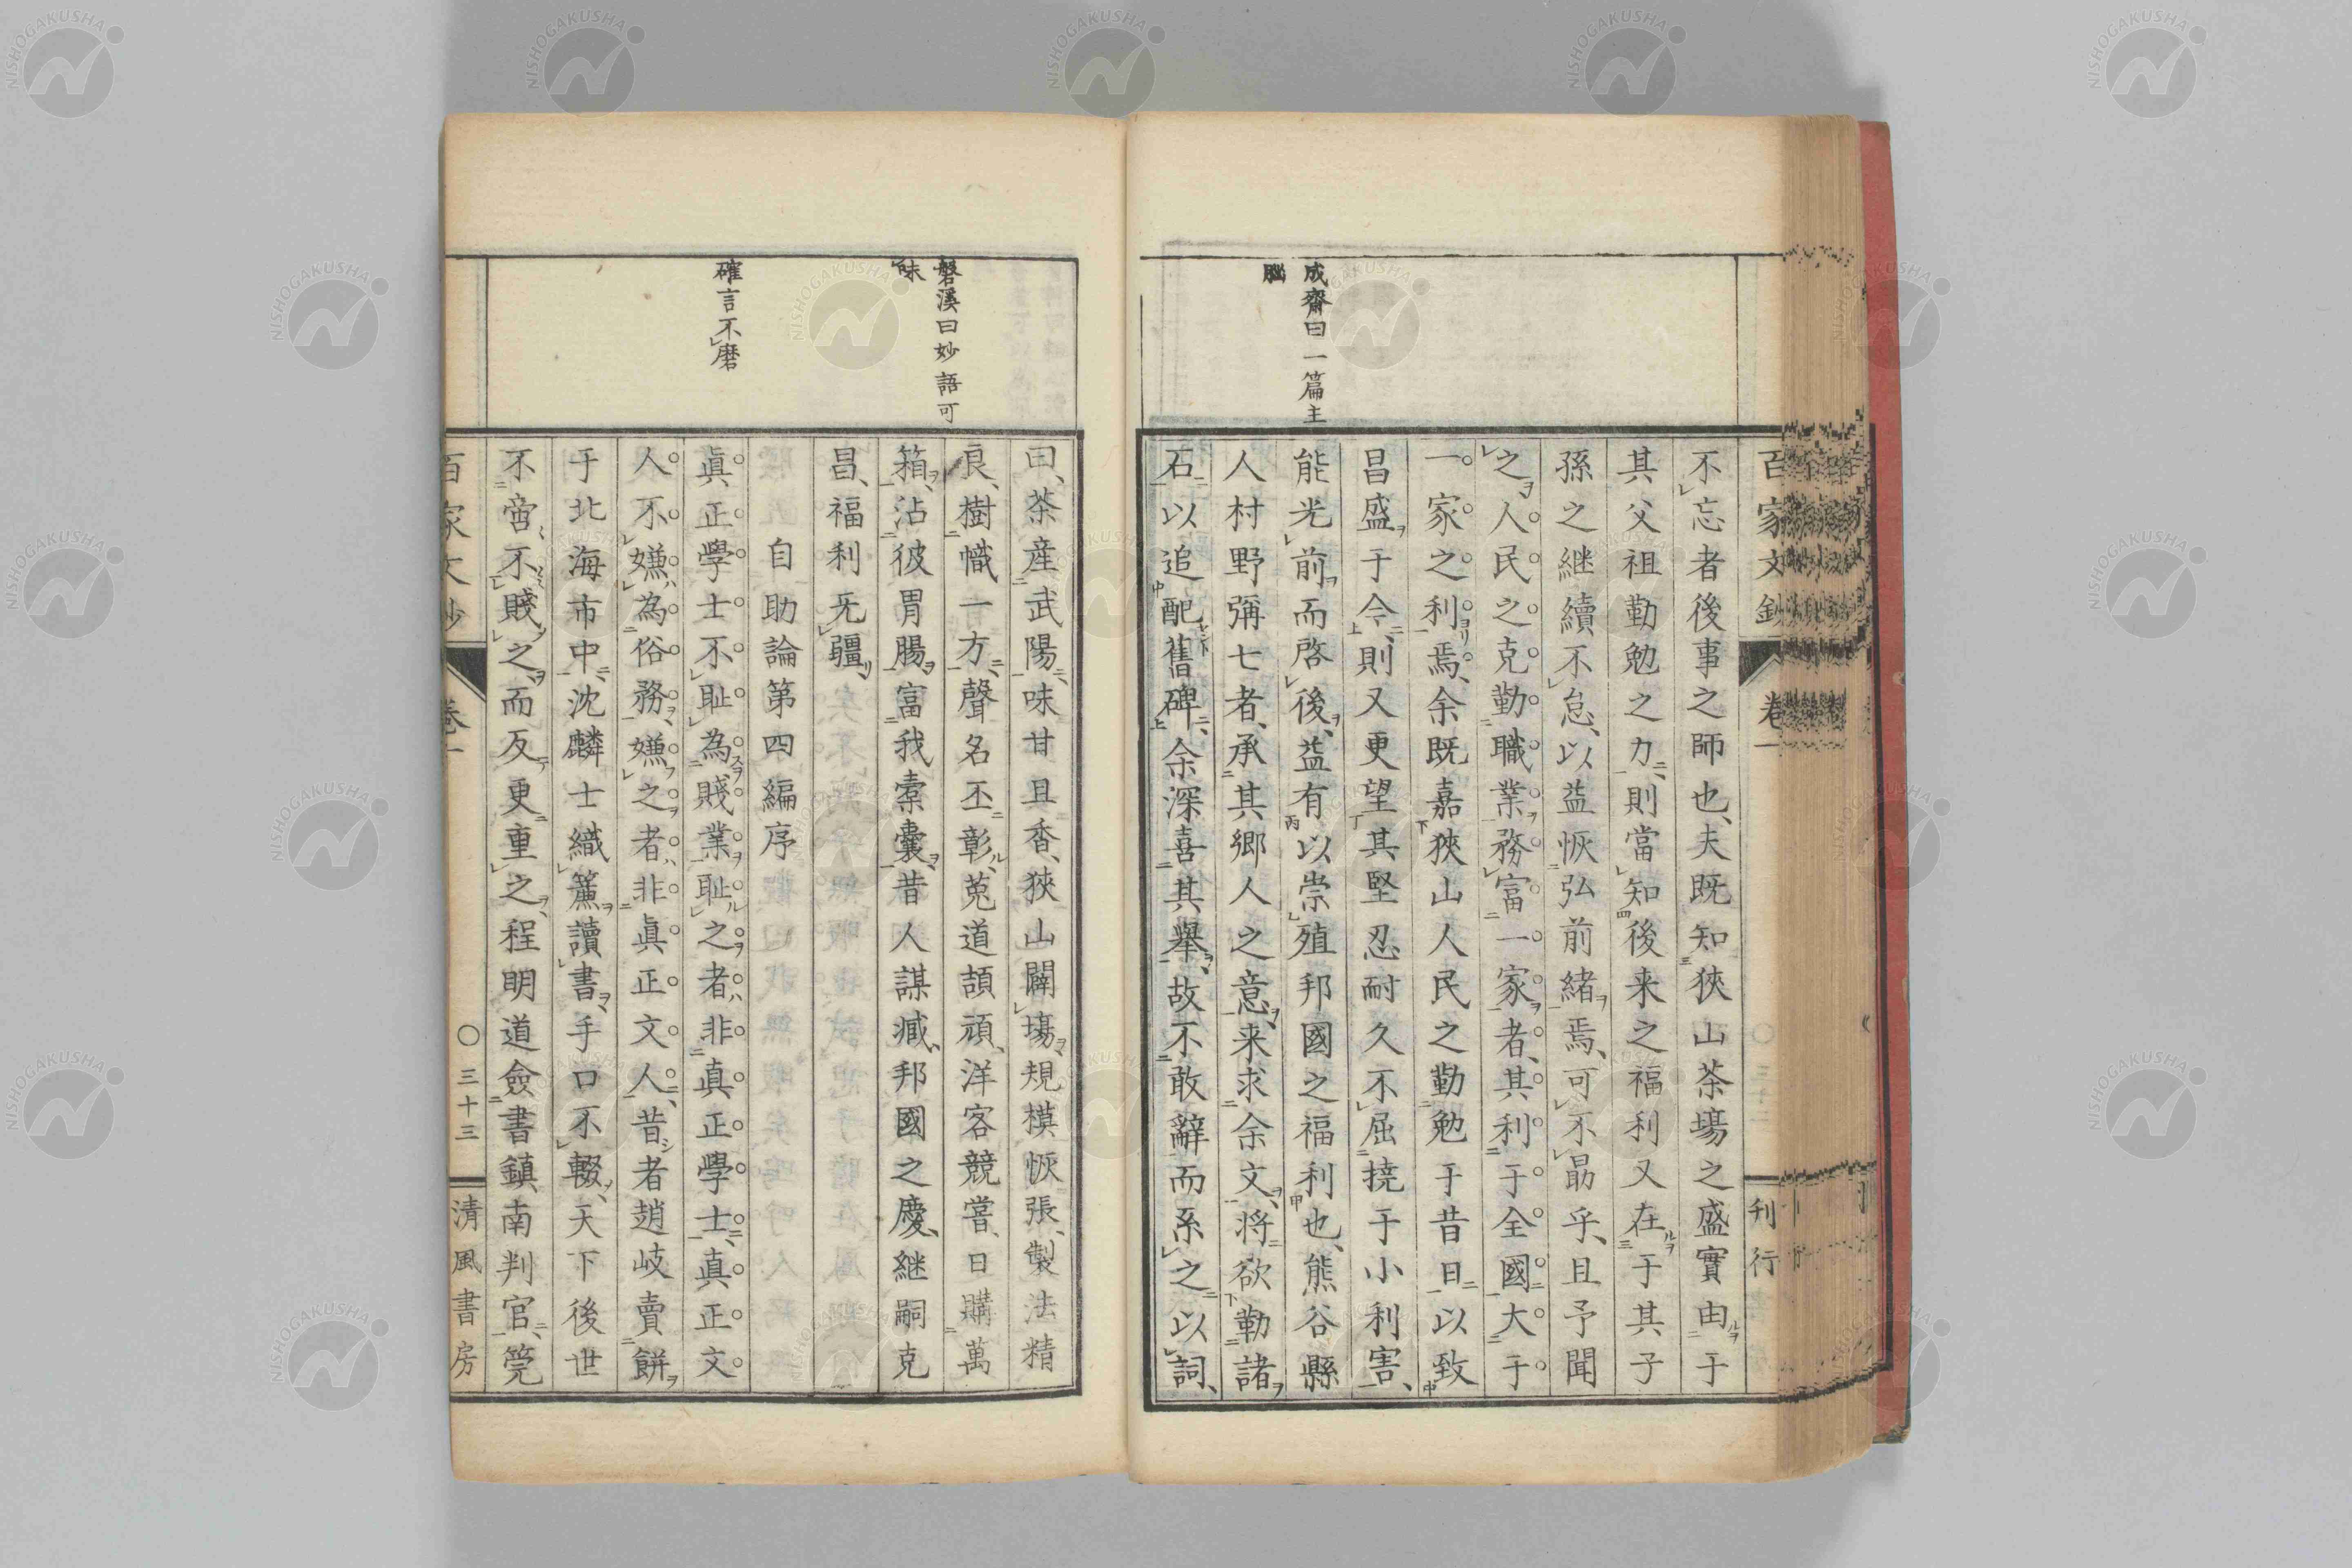 百家文鈔 卷一 刊行
成齋曰一篇主
腦
不忘者後事之師也、夫既知狹山茶場之盛實由于
其父祖勤勉之力、則當知後来之福利又在于其子
孫之継續不怠、以益恢弘前緒焉、可不勗乎、且予聞
之人民之克勤職業務富一家者、其利于全國大于
一家之利焉、余既嘉狹山人民之勤勉于昔日以致
昌盛于今、則又更望其堅忍耐久不屈撓于小利害、
能光前而啓後、益有以崇殖邦國之福利也、熊谷縣
人村野彌七者、承其郷人之意、来求余文、将欲勒諸
石以追配舊碑、余深喜其擧、故不敢辭而系之以詞、
磐溪曰妙語可
味
確言不磨
曰、茶産武陽、味甘且香、狹山闢塲、規模恢張、製法精
良、樹幟一方、聲名丕彰、莵道頡頏、洋客競嘗、日購萬
箱、沾彼胃腸、富我橐囊、昔人謀臧、邦國之慶、継嗣克
昌、福利旡疆、
自助論第四編序
眞正學士不耻為賤業、耻之者、非真正學士、真正文
人不嫌為俗務、嫌之者、非眞正文人、昔者趙岐賣餅
于北海市中、沈麟士織簾讀書、手口不輟、天下後世
不啻不賤之、而反更重之、程明道僉書鎮南判官、筦
百家文鈔 卷一 〇三十三 清風書房